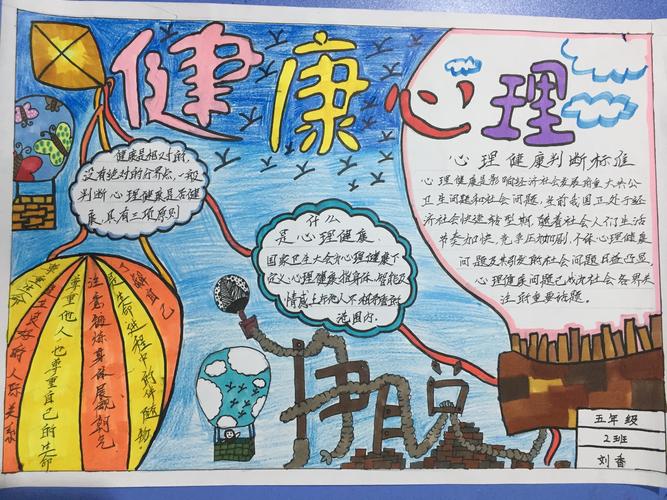 健康心理
健康是相对的,
没有绝对的分界线,一般
判断心理健康是否健
康,具有三项原则
什么
是心理健康
国家卫生大会对心理健康下
定义:心理健康指身体、智能及
情感上与他人不相矛盾
范围内.
心理健康判断标准
心理健康是影响经济社会发展的重大公共
卫生问题和社会问题,当前我国正处于经
济社会快速转型期,随着社会人们生活
节奏加快,竞争压力加剧,个体心理健康
问题及其引发的社会问题日益凸显,
心理健康问题已成为社会各界关
注的重要话题.
了解自己
是生命进程中的伴随物
注意锻炼身体展威朝气
尊重他人,也尊重自己的生命
建立良好的人际关系
五年级
2班
刘香